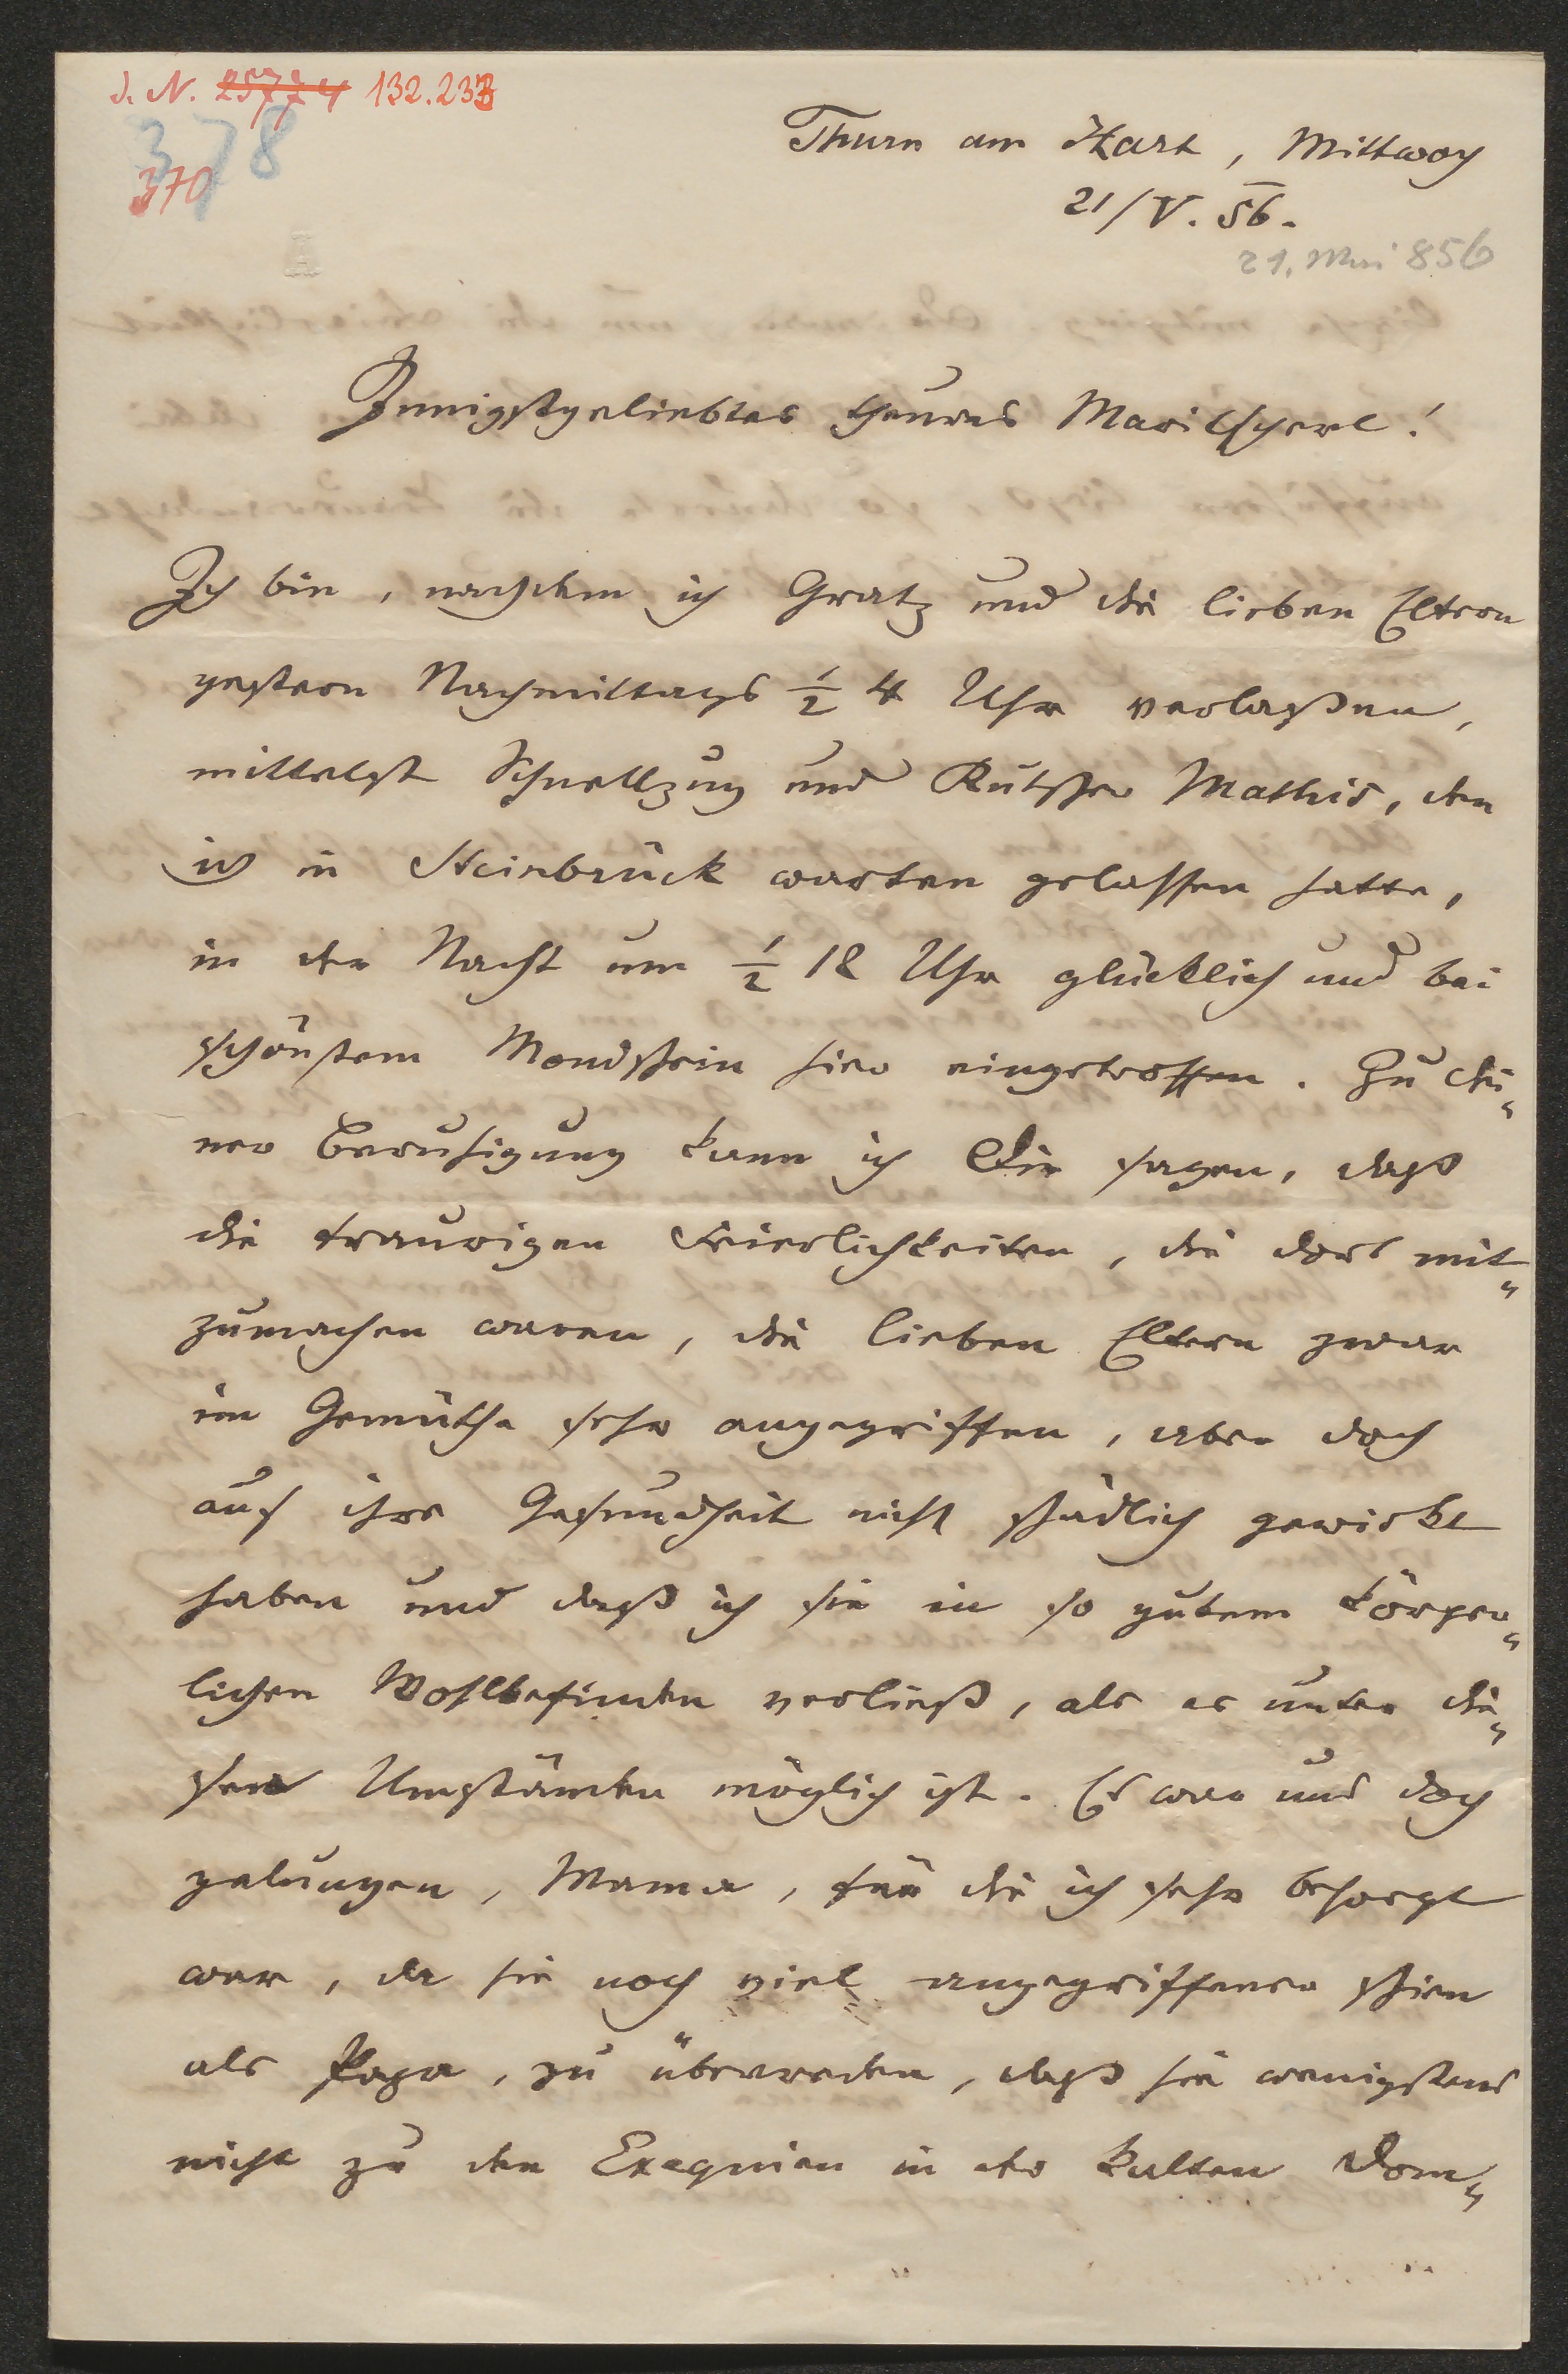 J. N. 25774 132.233
378
370
Thurn am Hart, Mittwoch
21/V. 56.
21. Mai 856
Innigstgeliebtes theures Maritscherl!
Ich bin, nachdem ich Gratz und die lieben Eltern
gestern Nachmittags ½ 4 Uhr verlaßen,
mittelst Schnellzug und Kutscher Mathis, den
ich in Steinbrück warten gelassen hatte,
in der Nacht um ½ 12 Uhr glücklich und bei
schönstem Mondschein hier eingetroffen. Zu dei„
ner Beruhigung kann ich Dir sagen, daß
die traurigen Feierlichkeiten, die dort mit„
zumachen waren, die lieben Eltern zwar
im Gemüthe sehr angegriffen, aber doch
auf ihre Gesundheit nicht schädlich gewirkt
haben und daß ich sie in so gutem körper„
lichen Wohlbefinden verließ, als es unter die„
sen Umständen möglich ist. Es war uns doch
gelungen, Mama, für die ich sehr besorgt
war, da sie noch viel angegriffener schien
als Papa, zu überreden, daß sie wenigstens
nicht zu den Exequien in der kalten Dom„